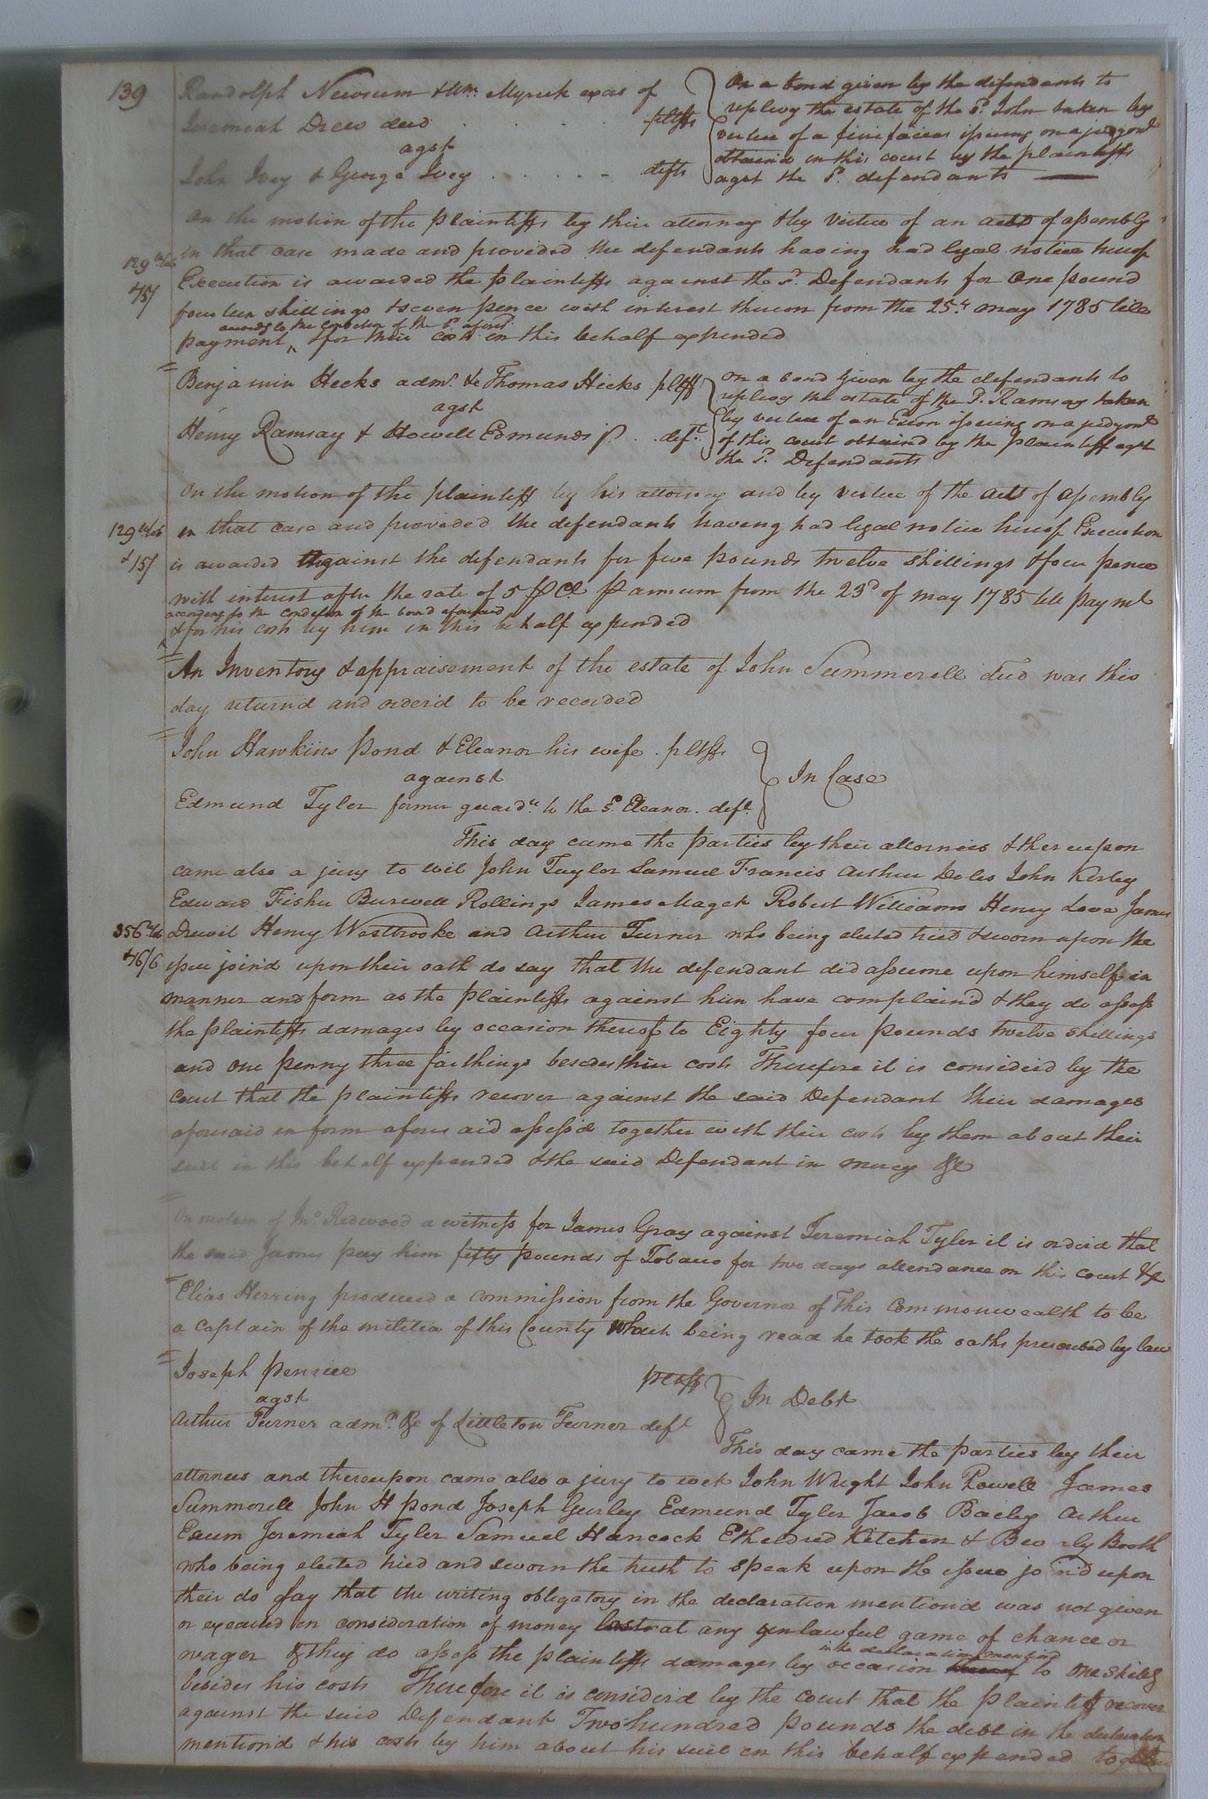 139
Randolph Newsum & Wm. Myrick exors of
Jeremiah Drew decd . . . . pltffs
agst
John Ivey & George Ivey . . . . . . defts
On a bond given by the defendants to
replevy the estate of the sd. John taken by
vertue of a fieri facias issuing on a judgmt
obtain'd in this court by the plaintiffs
agst the sd. defendants
On the motion of the plaintiffs by their attorney & by vertue of an act of assembly
in that case made and provided the defendants having had legal notice hereof
Execution is awarded the plaintiffs against the sd. Defendants for One pound
fourteen shillings & seven pence with interest thereon from the 25th may 1785 till
according to the condition of the sd. aforesd.
payment ^ & for their costs in this behalf expended
129
15/
Benjamin Hicks admr. &c Thomas Hicks pltff
agst
Henry Ramsay & Howell Edmunds . . deft.
On a bond given by the defendants to
replevy the estate of the sd. Ramsay taken
by vertue of an Exõon issuing on a judgmt
of this court obtained by the plaintiff agst
the sd. Defendants
On the motion of the plaintiff by his attorney and by vertue of the act of assembly
in that case and provided the defendants having had legal notice hereof Execution
is awarded against the defendants for five pounds twelve shillings & four pence
with interest after the rate of 5 P Ct. P annum from the 23d of may 1785 till paymt
according to the condition of the bond aforesaid
^ & for his costs by him in this behalf expended
129
& 15/
An Inventory & appraisement of the estate of John Summerell decd was this
day returnd and orderd to be recorded
John Hawkins Pond & Eleanor his wife . pltffs
against
Edmund Tyler former guardn. to the sd. Eleanor . deft.
In Case
This day came the parties by their attornies & thereupon
came also a jury to wit John Taylor Samuel Francis Arthur Doles John Kerley
Edward Fisher Burwell Rollings James Maget Robert Williams Henry Love James
Drewit Henry Westbrooke and Arthur Turner who being elected tried & sworn upon the
issue join'd upon their oath do say that the defendant did assume upon himself in
manner and form as the plaintiffs against him have complain'd & they do assess
the plaintiffs damages by occasion thereof to Eighty four pounds twelve shillings
and one penny three farthings besides their costs Therefore it is considerd by the
Court that the plaintiffs recover against the said Defendant their damages
aforesaid in form aforesaid assess'd together with their costs by them about their
suit in this behalf expended & the said Defendant in mercy &c
356
& 16/6
On motion of Jno. Redwood a witness for James Gray against Jeremiah Tyler it is orderd that
the said James pay him fifty pounds of Tobacco for two days attendance on this court &c
Elias Herring produced a commission from the Governor of this Commonwealth to be
a Captain of the militia of this County which being read he took the oaths prescribed by law
Joseph Pensice pltff
agst
Arthur Turner admr. &c of Littleton Turner deft
In Debt
This day came the parties by their
attornies and thereupon came also a jury to wit John Wright John Powell James
Summerell John H Pond Joseph Gurley Edmund Tyler Jacob Bailey Arthur
Exum Jeremiah Tyler Samuel Hancock Etheldred Kitchen & Beverly Booth
who being elected tried and sworn the truth to speak upon the issue join'd upon
their do say that the writing obligatory in the declaration mentiond was not given
or executed in consideration of money at any unlawful game of chance or
in the declaration mentiond
wager & they do assess the plaintiffs damages by occasion to one shillg
besides his costs Therefore it is considerd by the court that the plaintiff recover
against the said Defendant Two hundred pounds the debt in the declaration
mentiond & his costs by him about his suit in this behalf expended together